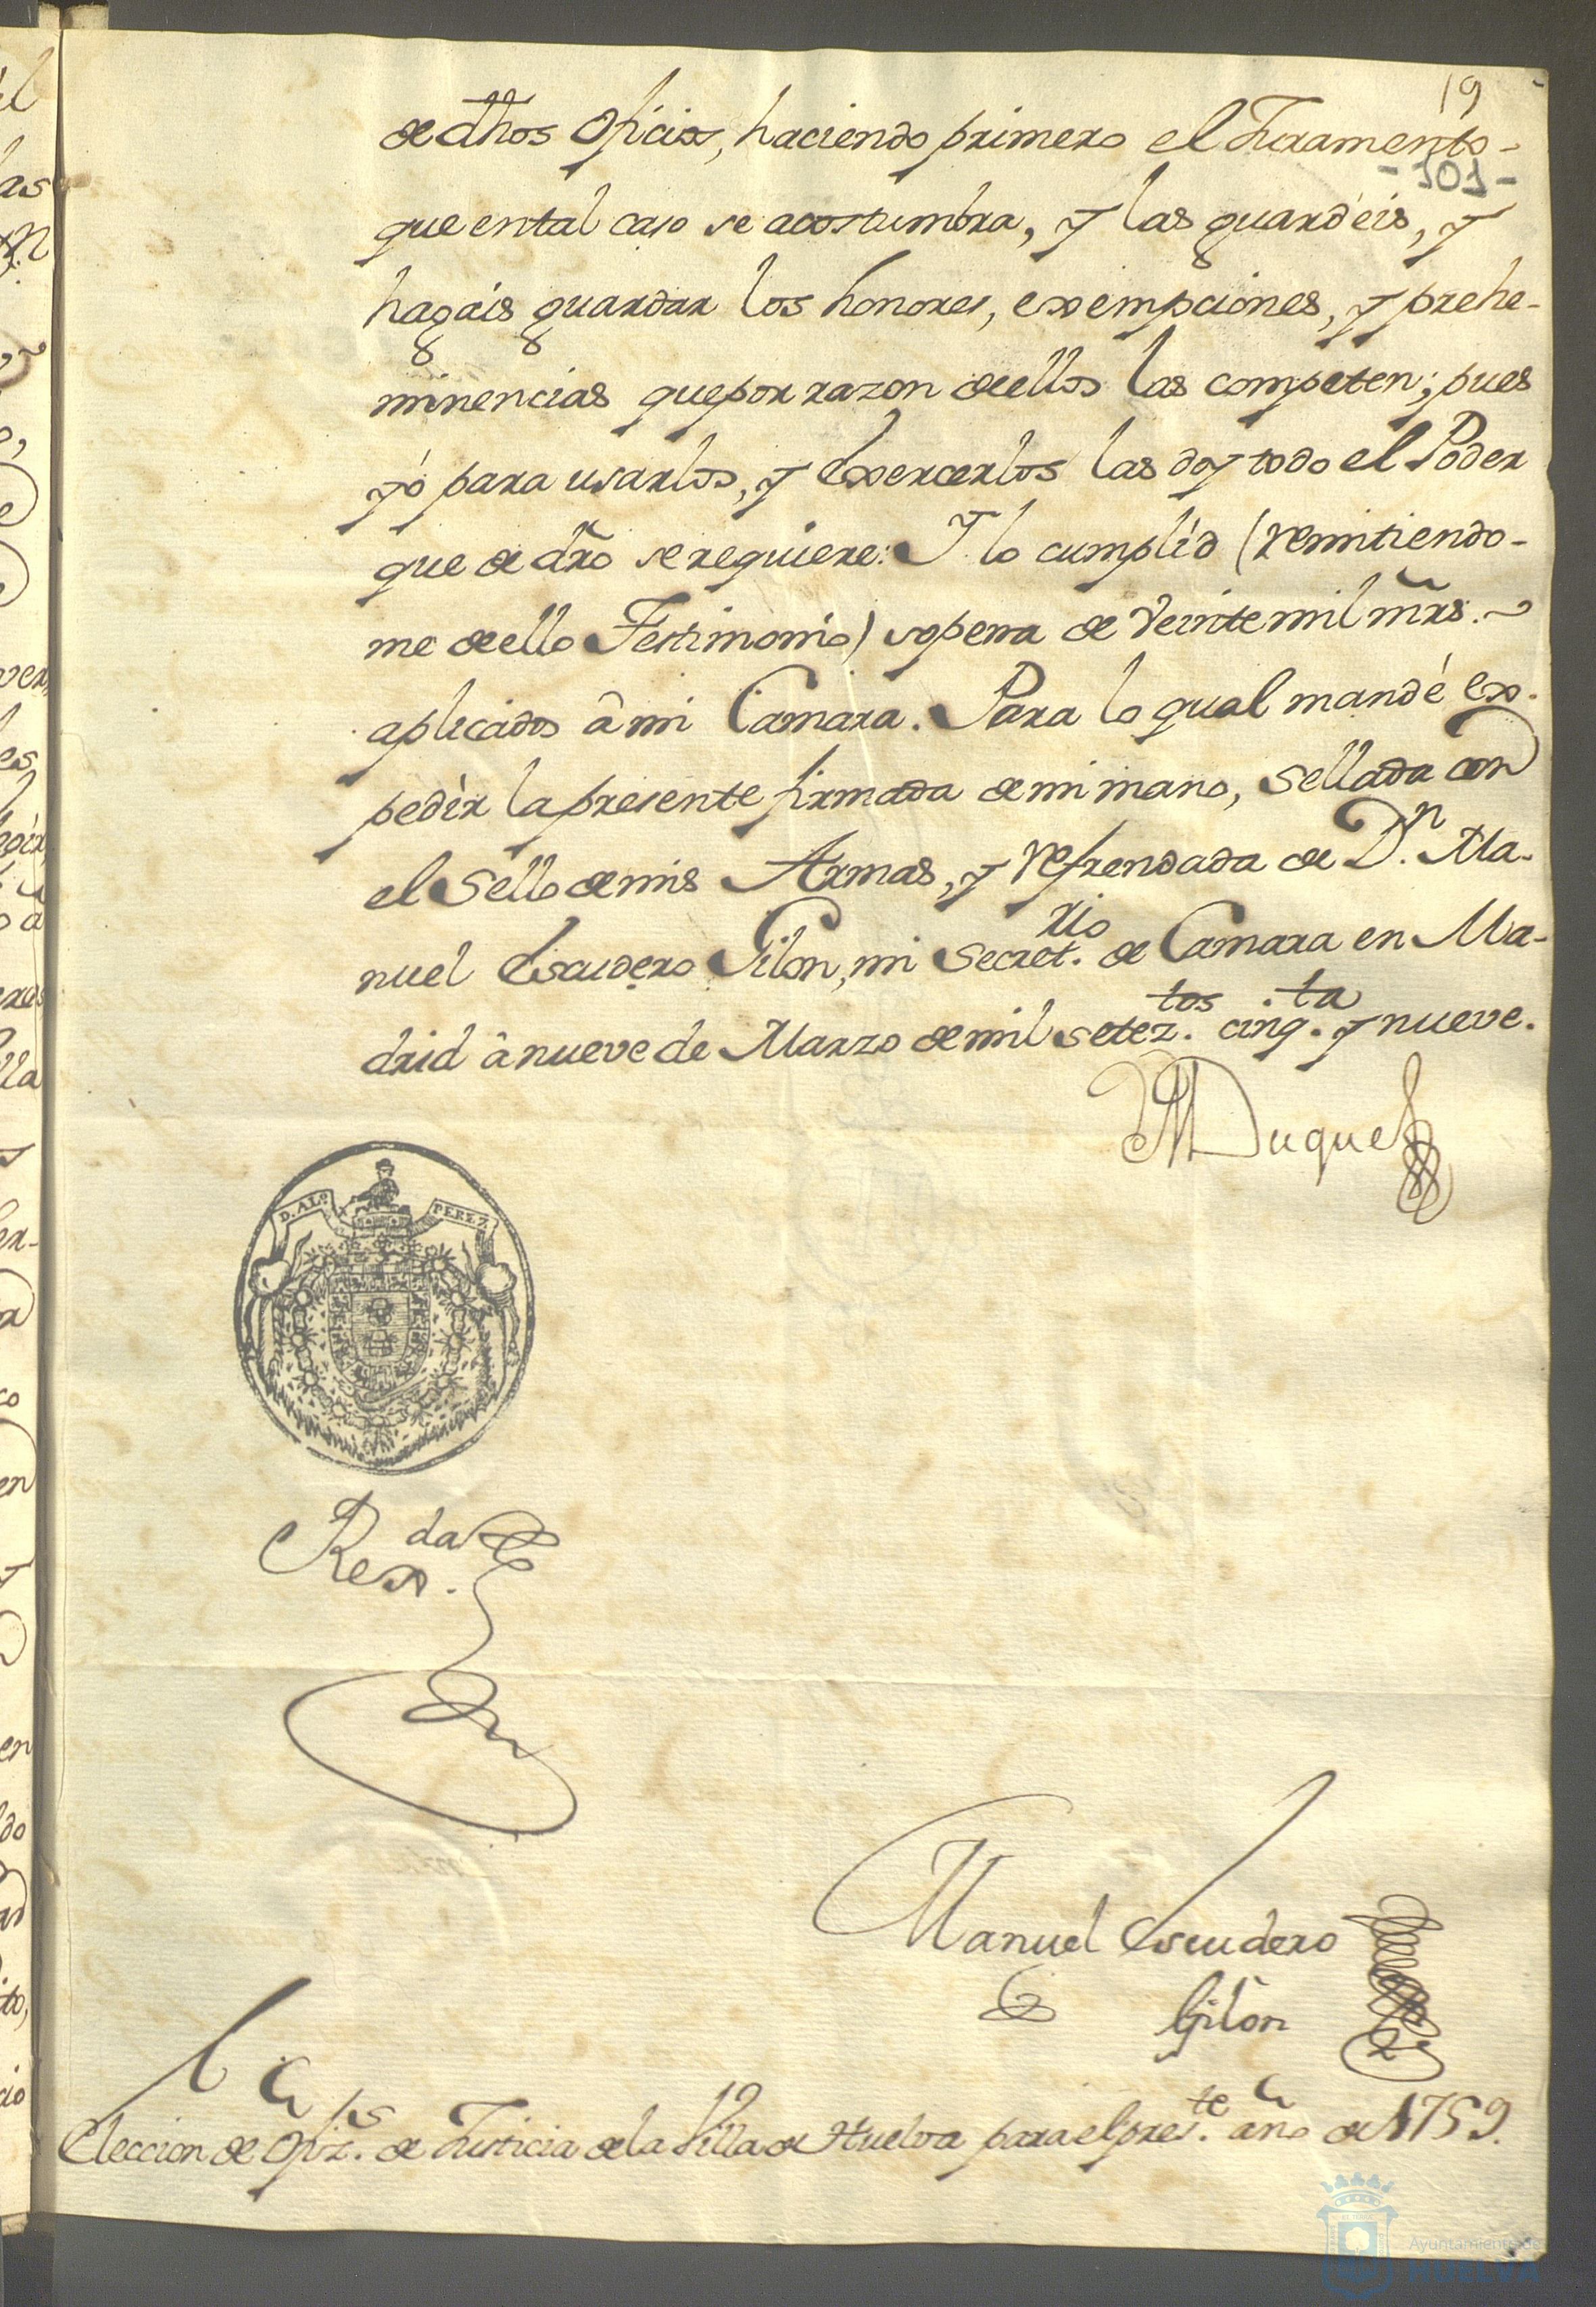 19
de dhos Oficios, haciendo primero el Juramento-
- 101 -
que ental caso se acostumbra, y las guardéis, y
hagais guardar los honores, exempciones, y prehe-
minencias quepor razon deellos las competen; pues
yó para usarlos, y Exercerlos las doy todo el Poder
que de dro serequiere: Y lo cumplid (remitiendo-
me deello Testimonio) sopena de Veinte mil mrs.
aplicados â mi Camara. Para lo qual mandé ex-
pedir la presente firmada demi mano, Sellada con
el Sello demis Armas, y refrendada de Dn. Ma-
nuel Escudero Gilon, mi Secret.rio de Camara en Ma-
drid â nueve de Marzo demil setez.tos cinq.ta y nueve.
El Duque
D. ALO. PEREZ
Rex.da
Manuel Escudero
Gilòn
V.E.
Eleccion de Ofiz.s de Justicia dela Villa de Huelva para el pres.te año de 1759.
Ayuntamiento de
HUELVA